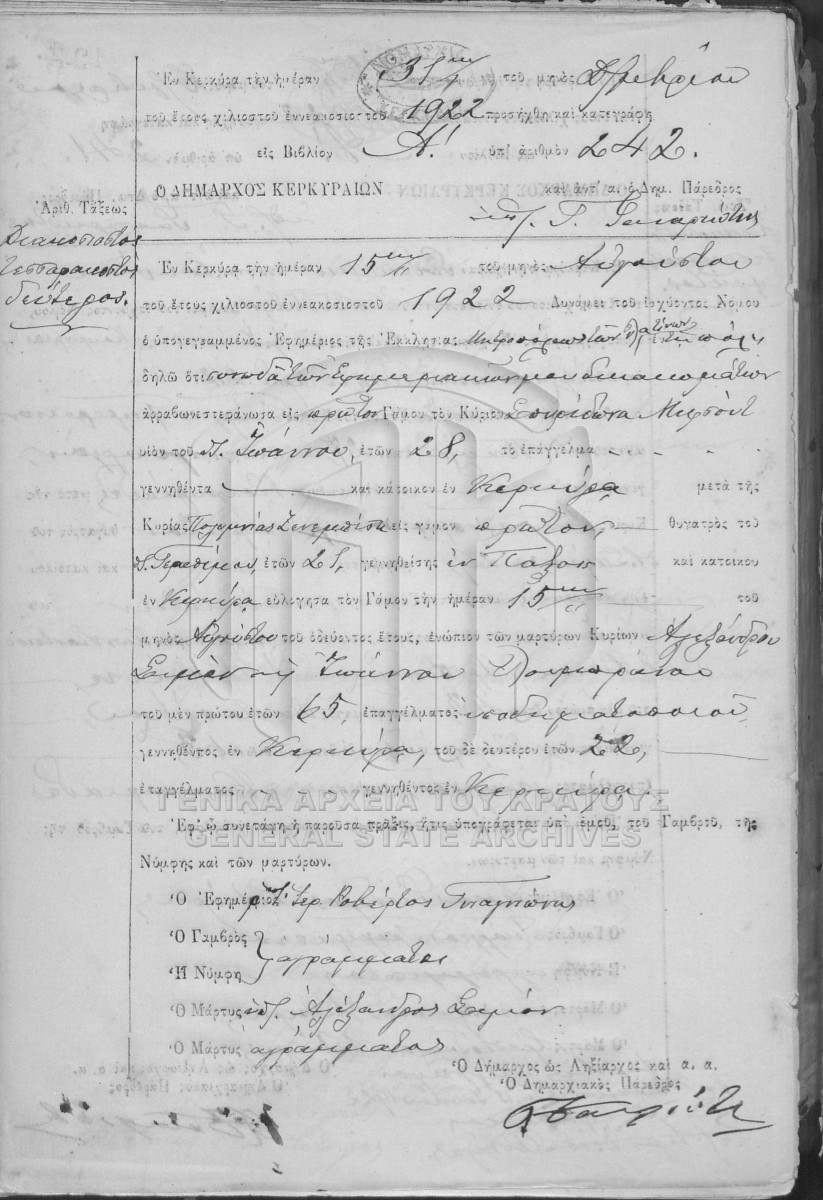 Ἐν Κερκύρᾳ τὴν ἡμέραν 31ην τοῦ μηνὸς
τοῦ ἔτους χιλιοστοῦ ἐννεακοσιοστοῦ 1922 προσήχθη καὶ κατεγράφη
εἰς Βιβλίον Α'. ὑπ' ἀριθμὸν 242.
Ο ΔΗΜΑΡΧΟΣ ΚΕΡΚΥΡΑΙΩΝ καὶ ἀντ' α. ὁ Δημ. Πάρεδρος
Ἀριθ. Τάξεως
Διακοσιοστὸς
τεσσαρακοστὸς
δεύτερος.
Ἐν Κερκύρᾳ τὴν ἡμέραν 15ην τοῦ μηνὸς Αὐγούστου
τοῦ ἔτους χιλιοστοῦ ἐννεακοσιοστοῦ 1922 Δυνάμει τοῦ ἰσχύοντος Νόμου
ὁ ὑπογεγραμμένος Ἐφημέριος τῆς Ἐκκλησίας Μητροπόλεως τῶν Λατίνων
δηλῶ ὅτι τῶν Ἐφημεριακῶν μου δικαιωμάτων
ἀρραβωνεστεράνωσα εἰς πρῶτον Γάμον τὸν Κύριον Σπυρίδωνα
υἱὸν τοῦ π. Ἰωάννου, ἐτῶν 28, τὸ ἐπάγγελμα
γεννηθέντα καὶ κάτοικον ἐν Κερκύρᾳ μετὰ τῆς
Κυρίας Πολυμνίας εἰς γάμον πρῶτον, θυγατρὸς τοῦ
ἐτῶν 21, γεννηθείσης ἐν Παξοῖς καὶ κατοίκου
ἐν Κερκύρᾳ εὐλόγησα τὸν Γάμον τὴν ἡμέραν 15ην τοῦ
μηνὸς Αὐγούστου τοῦ ὁδεύοντος ἔτους, ἐνώπιον τῶν μαρτύρων Κυρίων Ἀλεξάνδρου
Ἰωάννου
τοῦ μὲν πρώτου ἐτῶν 65, ἐπαγγέλματος ὑποδηματοποιοῦ,
γεννηθέντος ἐν Κερκύρᾳ, τοῦ δὲ δευτέρου ἐτῶν 22,
ἐπαγγέλματος γεννηθέντος ἐν Κερκύρᾳ.
ΓΕΝΙΚΑ ΑΡΧΕΙΑ ΤΟΥ ΚΡΑΤΟΥΣ
GENERAL STATE ARCHIVES
Ἐφ' ᾧ συνετάγη ἡ παροῦσα πρᾶξις, ἥτις ὑπογράφεται ὑπ' ἐμοῦ, τοῦ Γαμβροῦ, τῆς
Νύμφης καὶ τῶν μαρτύρων.
Ὁ Ἐφημέριος Ἱερ Ροβέρτος
Ὁ Γαμβρὸς
Ἡ Νύμφη
ἀγράμματοι
Ὁ Μάρτυς ὑπ. Ἀλέξανδρος
Ὁ Μάρτυς ἀγράμματος
Ὁ Δήμαρχος ὡς Ληξίαρχος καὶ α. α.
Ὁ Δημαρχιακὸς Πάρεδρος